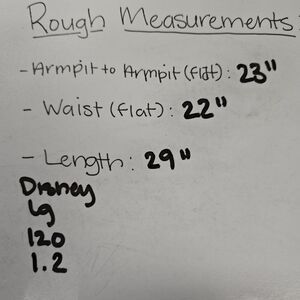 Rough Measurements:
- Armpit to Armpit (flat): 23"
- Waist (flat): 22"
- Length: 29"
Disney
Lg
120
1.2